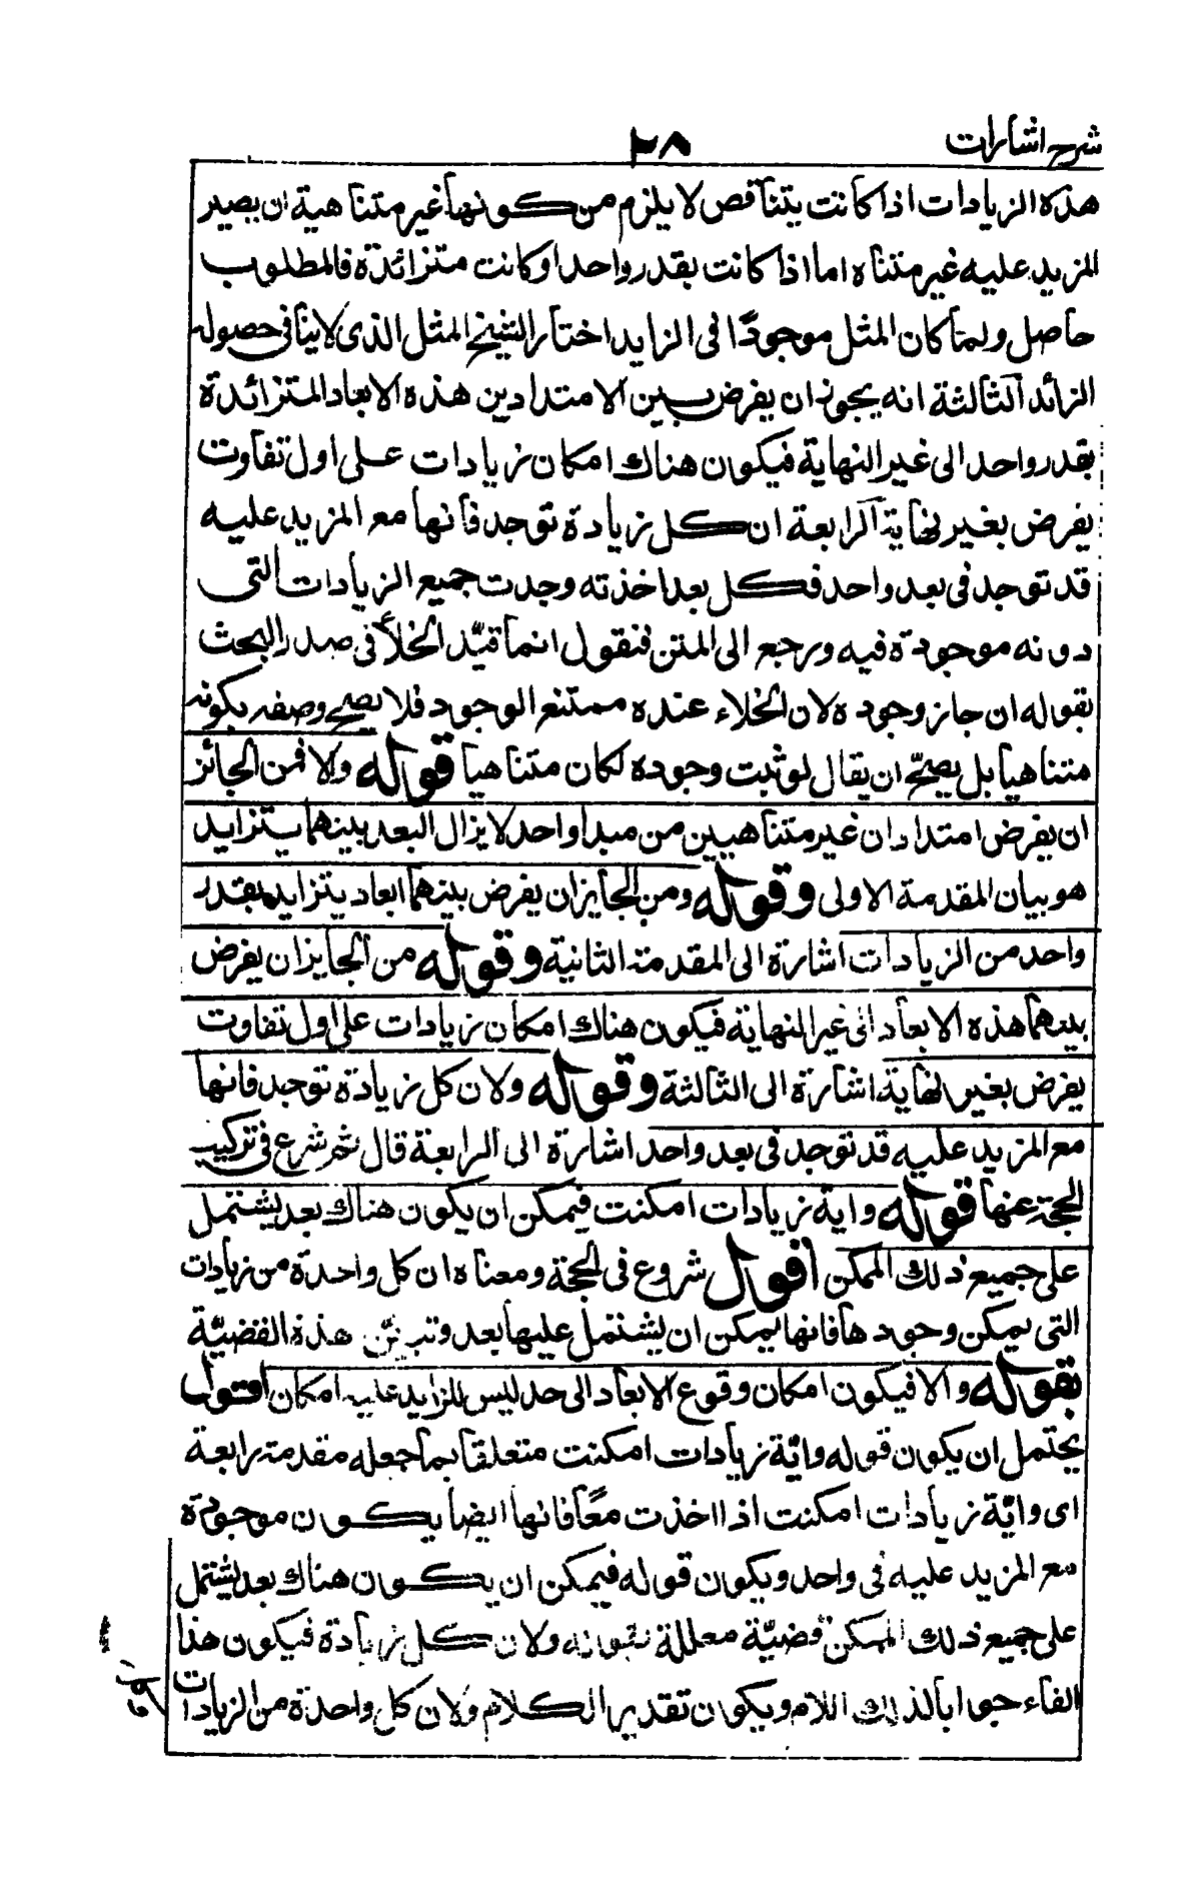 شرح اشارات
٢٨
هذه الزيادات اذا كانت يتناقص لا يلزم من كونها غير متناهية ان يصير
المزيد عليه غير متناه اما اذا كانت بقدر واحد او كانت متزائدة فالمطلوب
حاصل ولما كان المثل موجودًا فى الزايد اختار الشيخ المثل الذى لا ينافى حصوله
الزائد الثالثة انه يجوز ان يفرض بين الامتدادين هذه الابعاد المتزائدة
بقدر واحد الى غير النهاية فيكون هناك امكان زيادات على اول تفاوت
يفرض بغير نهاية الرابعة ان كل زيادة توجد فانها مع المزيد عليه
قد توجد فى بعد واحد فكل بعد اخذته وجدت جميع الزيادات التى
دونه موجودة فيه ونرجع الى المتن فنقول انما قيّد الخلأ فى صدر البحث
بقوله ان جاز وجوده لان الخلاء عنده ممتنع الوجود فلا يصح وصفه بكونه
متناهيا بل يصحّ ان يقال لو ثبت وجوده لكان متناهيا قوله والا فمن الجائز
ان يفرض امتدادان غير متناهيين من مبدا واحد لا يزال البعد بينهما يتزايد
هو بيان المقدمة الاولى وقوله ومن الجايز ان يفرض بينهما ابعاد يتزايد بقدر
واحد من الزيادات اشارة الى المقدمة الثانية وقوله من الجايز ان يفرض
بينهما هذه الابعاد الى غير النهاية فيكون هناك امكان زيادات على اول تفاوت
يفرض بغير نهاية اشارة الى الثالثة وقوله ولان كل زيادة توجد فانها
مع المزيد عليه قد توجد فى بعد واحد اشارة الى الرابعة قال ثم شرع فى تركيب
الحجة عنها قوله واية زيادات امكنت فيمكن ان يكون هناك بعد يشتمل
على جميع ذلك الممكن اقول شروع فى الحجة ومعناه ان كل واحدة من زيادات
التى يمكن وجودها فانها يمكن ان يشتمل عليها بعد وتبين هذه القضيّة
بقوله والا فيكون امكان وقوع الابعاد الى حد ليس للزايد عليه امكان اقول
يحتمل ان يكون قوله وايّة زيادات امكنت متعلقا بما جعله مقدمة رابعة
اى وايّة زيادات امكنت اذا اخذت معًا فانها ايضا يكون موجودة
مع المزيد عليه فى واحد ويكون قوله فيمكن ان يكون هناك بعد يشتمل
على جميع ذلك الممكن قضيّة معللة بقوله ولان كل زيادة فيكون هذا
الفاء جوابا لذلك اللام ويكون تقدير الكلام ولان كل واحدة من الزيادات